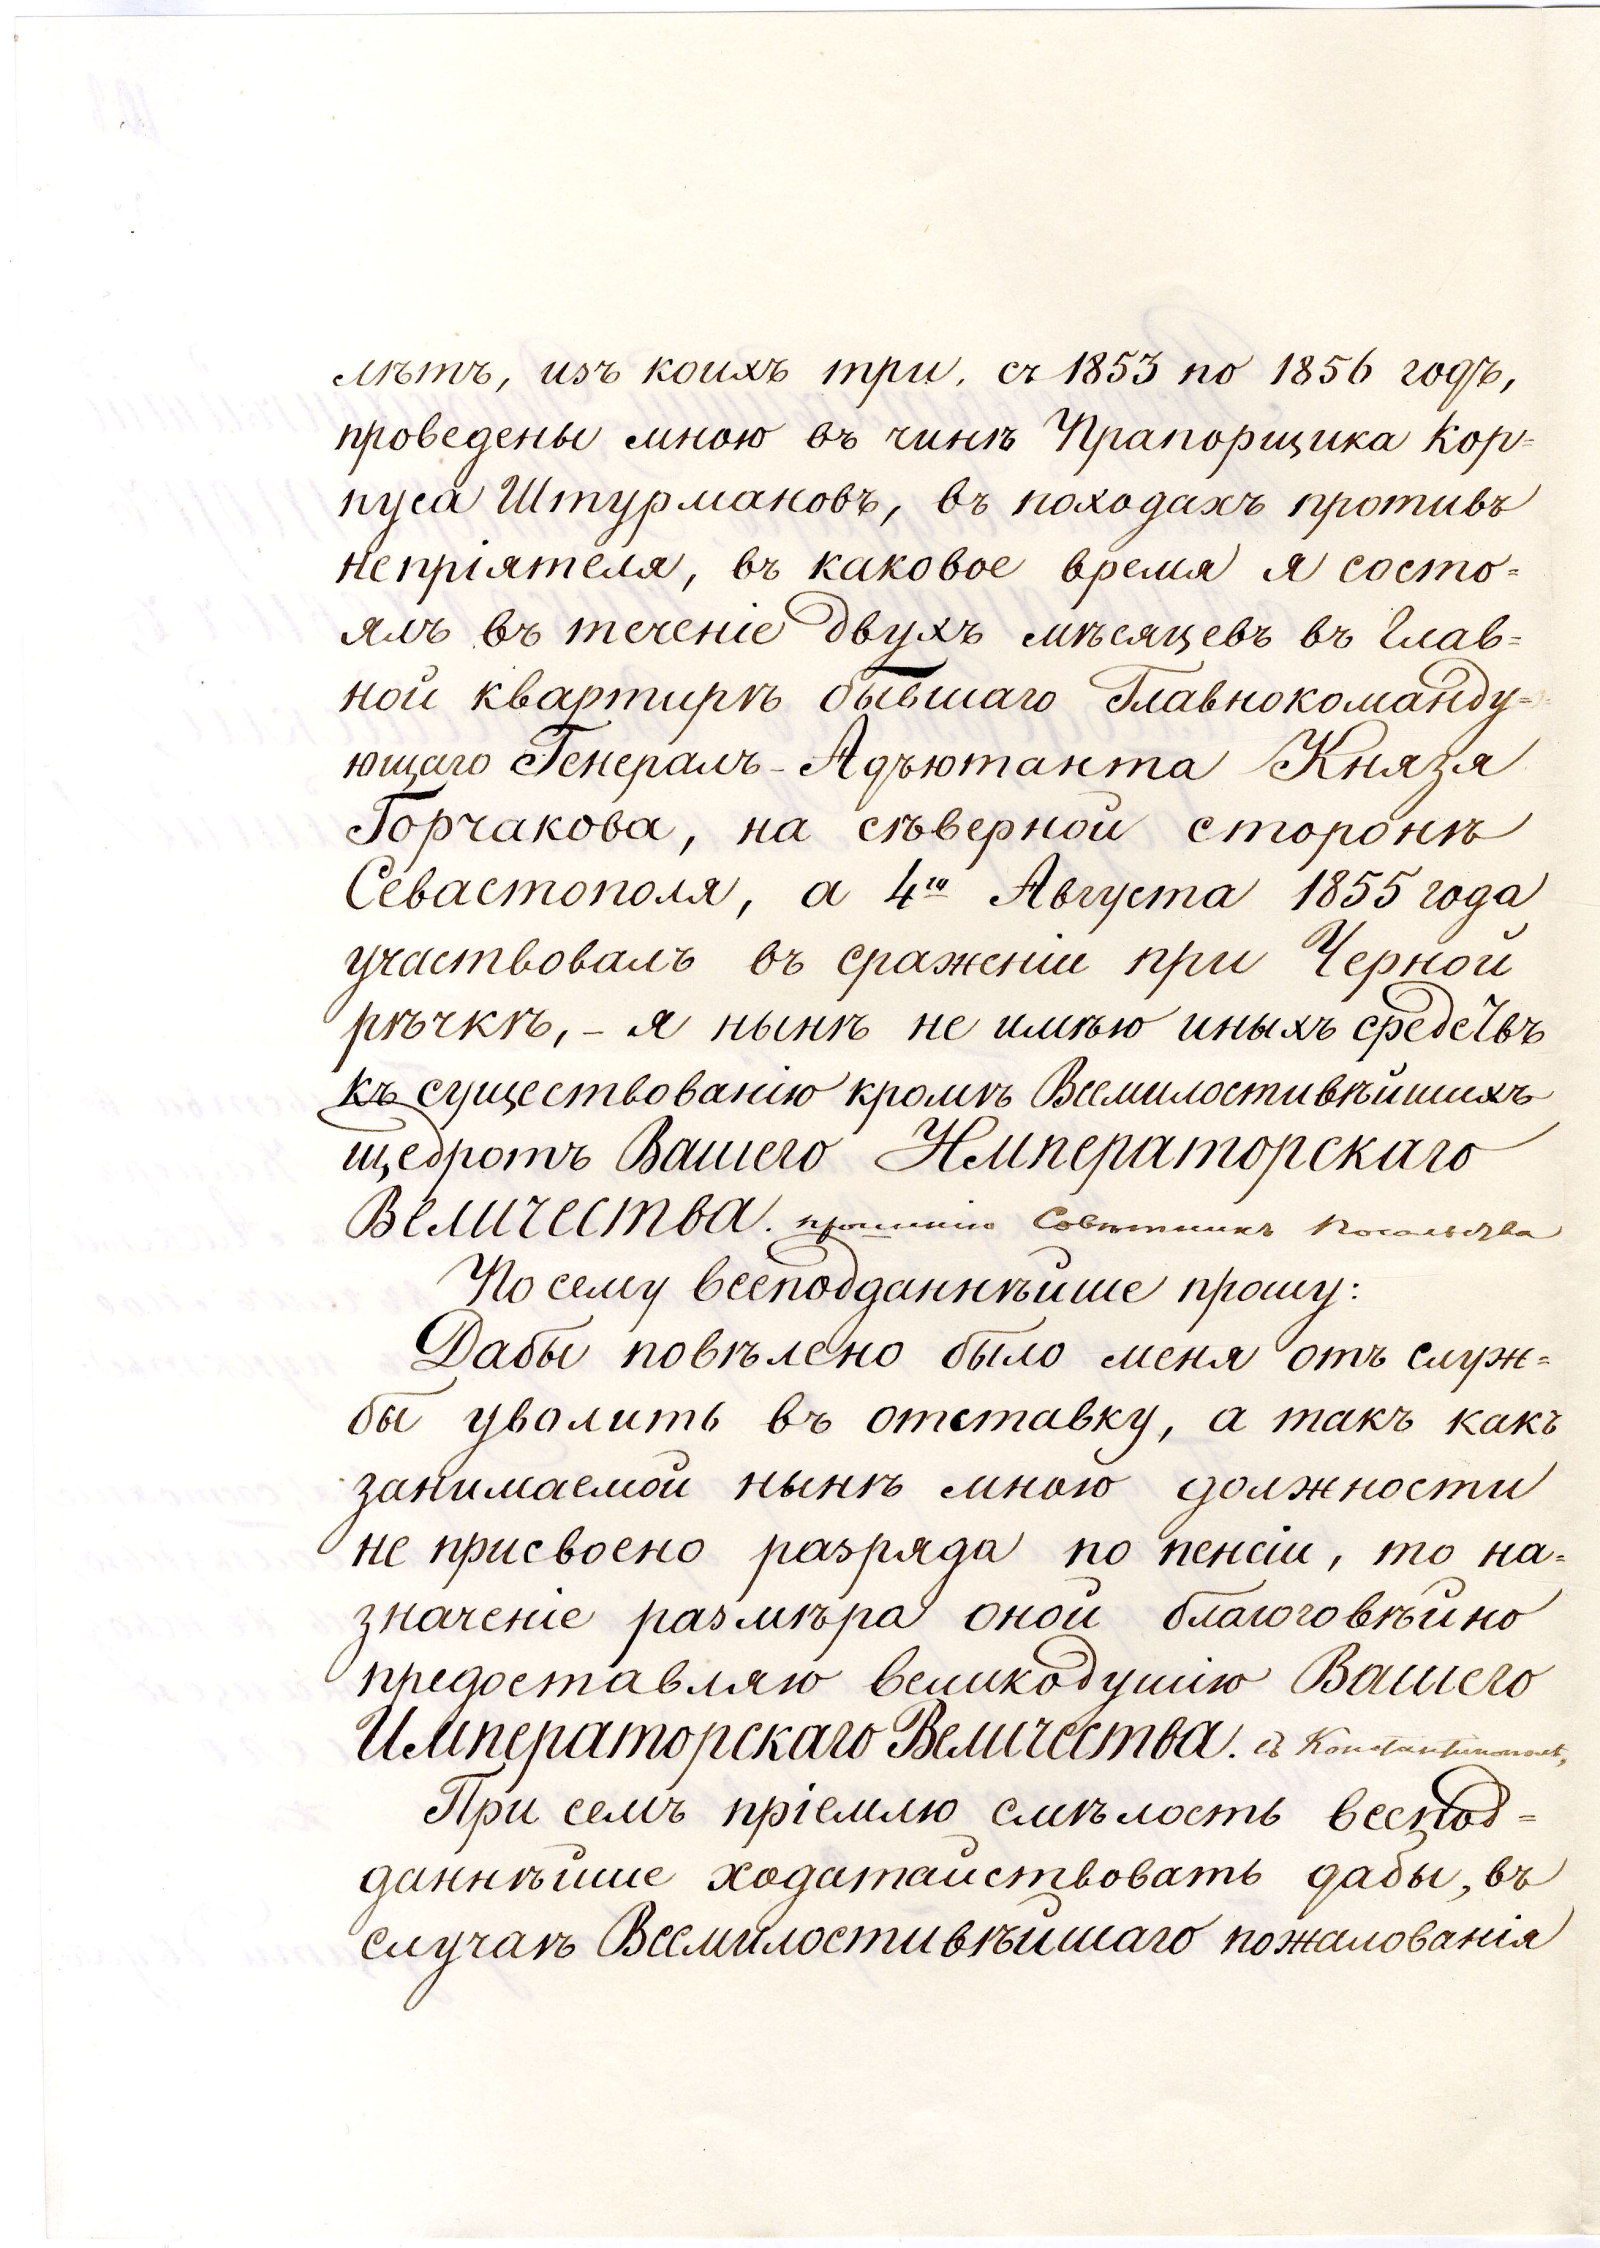 лѣтъ, изъ коихъ три, съ 1853 по 1856 годъ,
проведены мною въ чинѣ Прапорщика Кор=
пуса Штурмановъ, въ походахъ противъ
непріятеля, въ каковое время я состо=
ялъ въ теченіе двухъ мѣсяцевъ въ Глав=
ной квартирѣ бывшаго Главнокоманду=
ющаго Генералъ-Адъютанта Князя
Горчакова, на сѣверной сторонѣ
Севастополя, а 4го Августа 1855 года
участвовалъ въ сраженіи при Черной
рѣчкѣ, – я нынѣ не имѣю иныхъ средствъ
къ существованію кромѣ Всемилостивѣйшихъ
щедротъ Вашего Императорскаго
Величества. прошенію Совѣтникъ Посольства
По сему всеподданнѣйше прошу:
Дабы повѣлено было меня отъ служ=
бы уволить въ отставку, а такъ какъ
занимаемой нынѣ мною должности
не присвоено разряда по пенсіи, то на=
значеніе размѣра оной благоговѣйно
предоставляю великодушію Вашего
Императорскаго Величества. въ Константинополѣ,
При семъ пріемлю смѣлость всепод=
даннѣйше ходатайствовать дабы, въ
случаѣ Всемилостивѣйшаго пожалованія